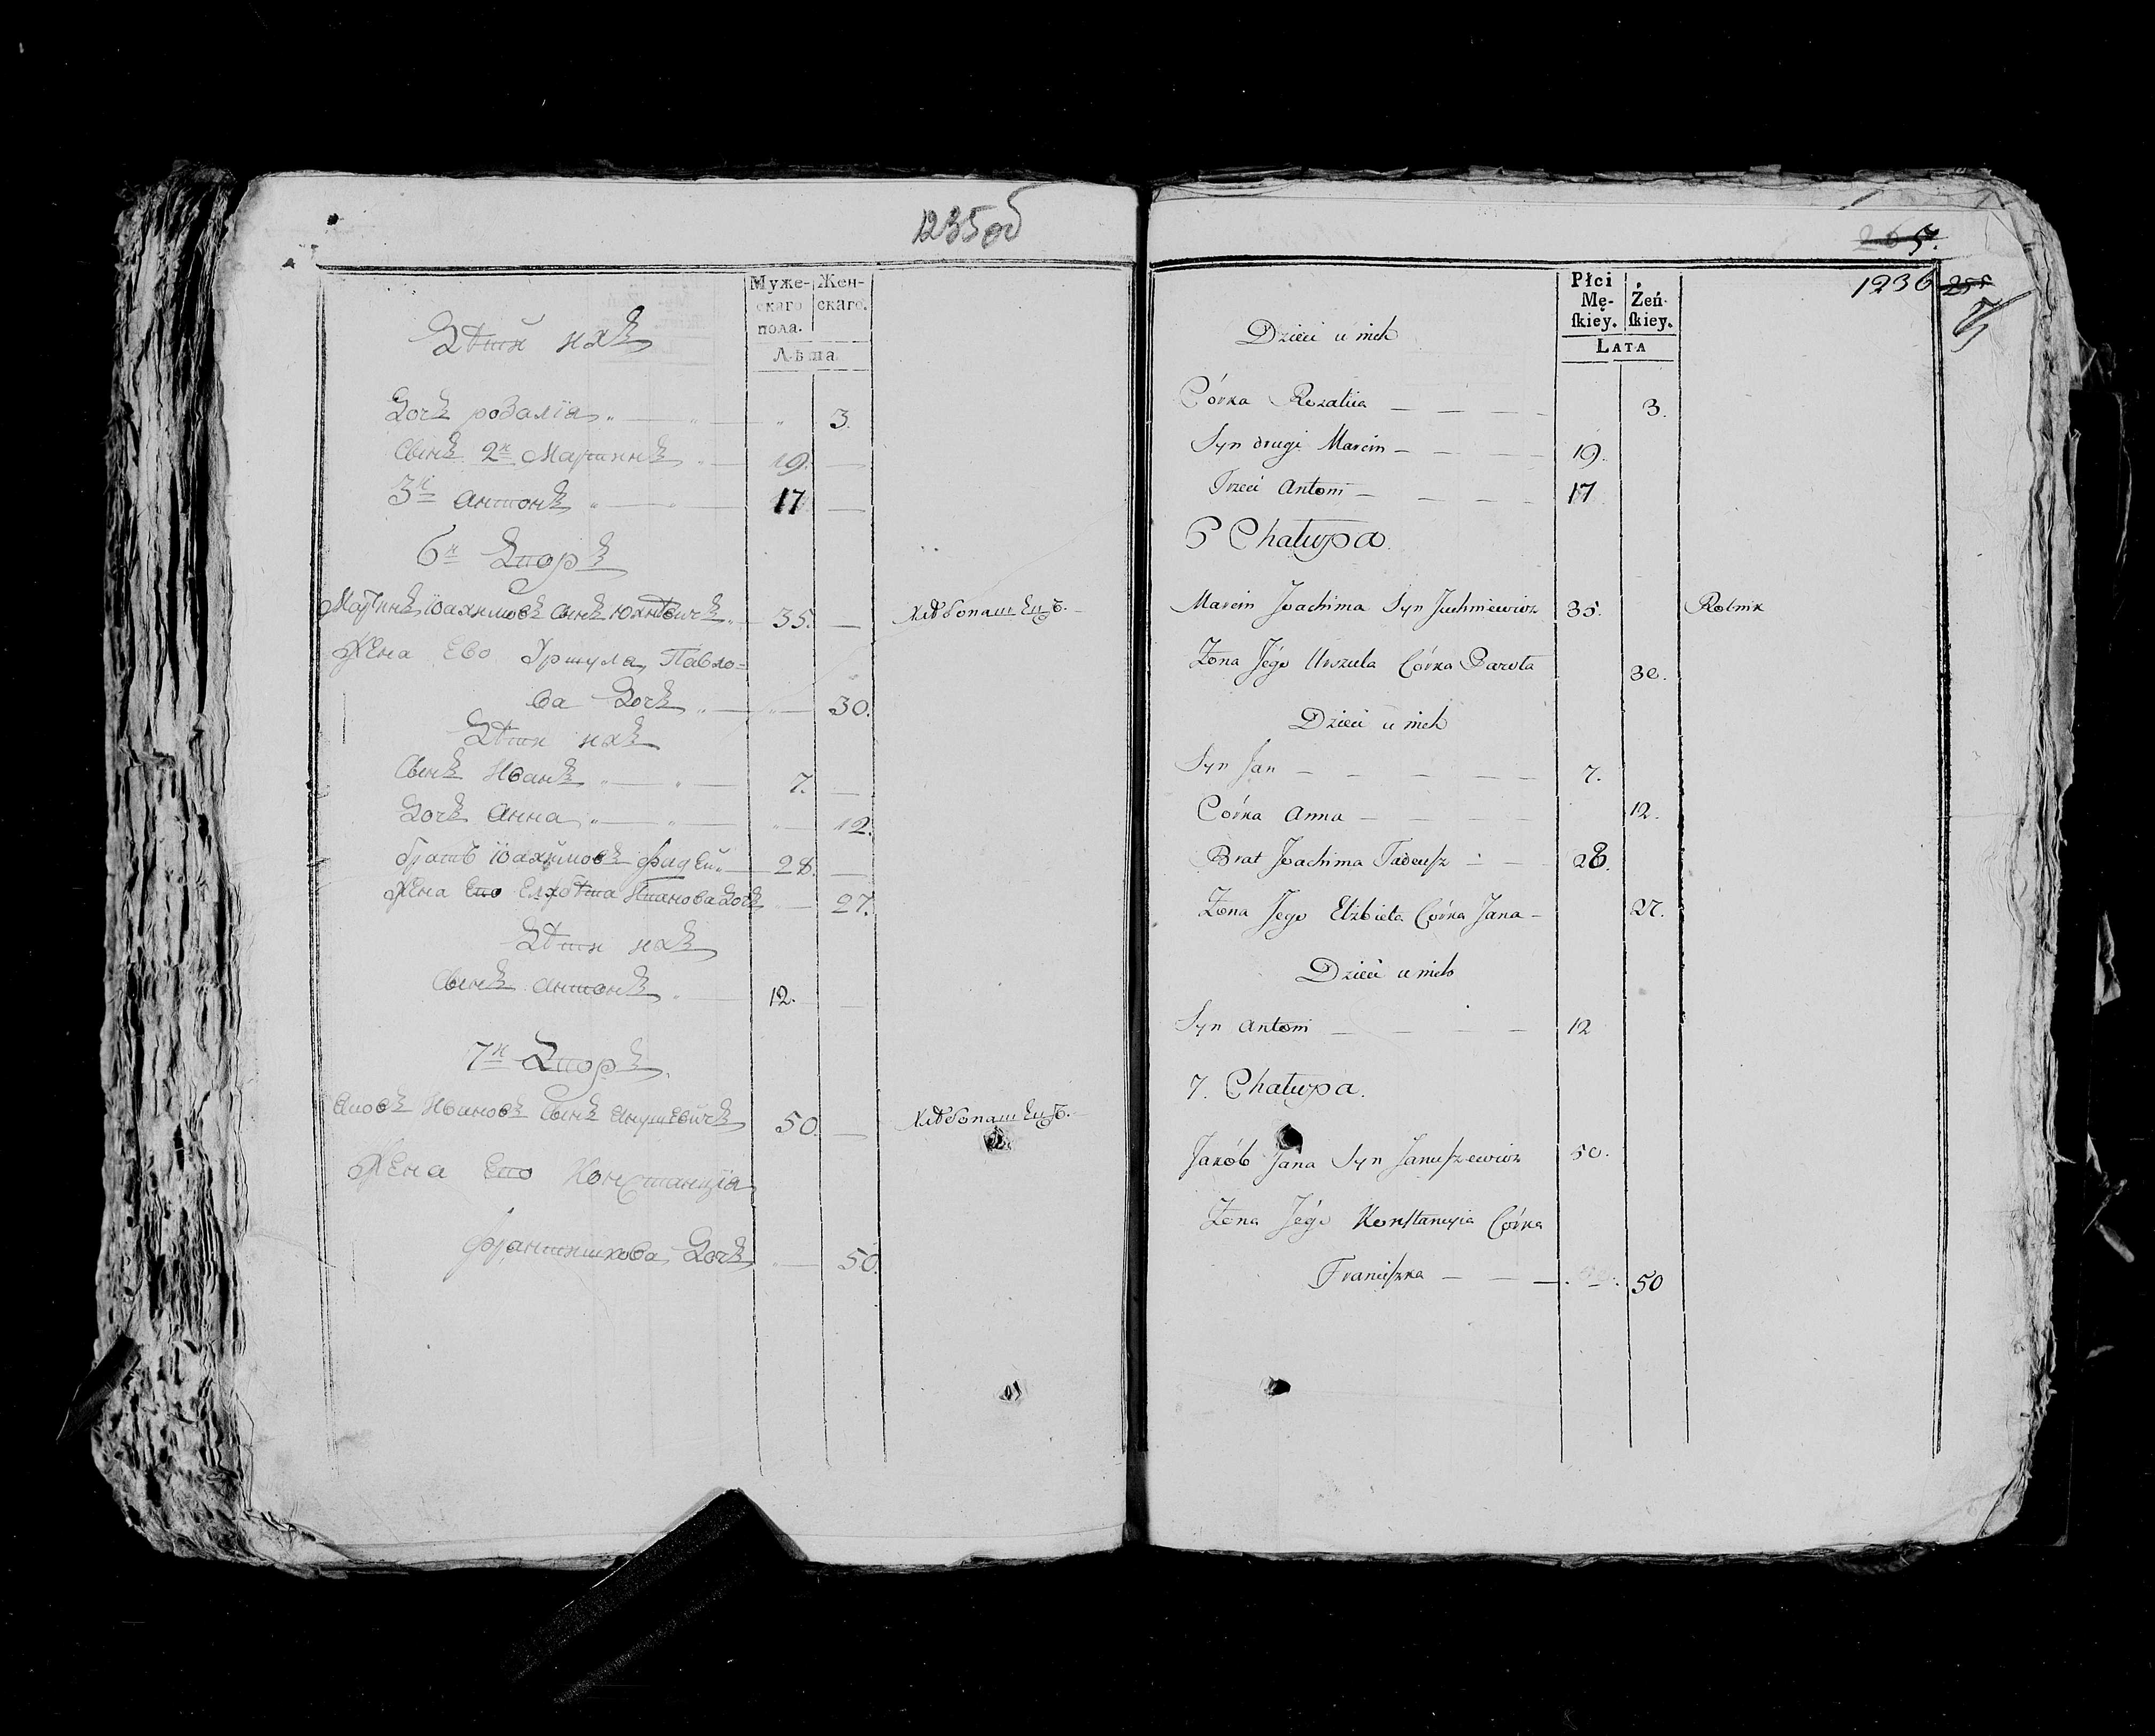 1235об
Муже-
скаго
пола.
Жен-
скаго.
Лѣта
Дѣти ихъ
Дочь розалїа 3.
Сынъ 2й Мартинъ 19.
3й антонъ 17
6й Дворъ
Мартинъ їоахимовъ сынъ юхнѣвичъ 35. Хлѣбопашецъ.
Жена Ево Уршула Павло-
ва Дочь 30.
Дѣти ихъ
Сынъ Иванъ 7.
Дочь Анна 12.
братъ їоахимовъ фадей 28.
Жена Его Елжбѣта Иванова Дочь 27.
Дѣти ихъ
Сынъ антонъ 12.
7й Дворъ.
Яковъ Ивановъ Сынъ янушевичъ 50. Хлѣбопашецъ.
Жена Его Констанція
францишкова Дочь 50.
1236
Płci
Mę-
ſkiey.
Żeń-
ſkiey.
LATA
Dzieci u nich
Córka Rozalija 3.
Syn drugi Marcin 19.
Trzeci Antoni 17
6 Chałupa.
Marcin Joachima Syn Juchniewicz 35. Rolnik
Żona Jego Urszula Córka Pawła 30.
Dzieci u nich
Syn Jan 7.
Córka Anna 12.
Brat Joachima Tadeuſz 28.
Żona Jego Elżbieta Córka Jana 27.
Dzieci u nich
Syn Antoni 12
7. Chałupa.
Jakób Jana Syn Januſzewicz 50.
Żona Jego Konſtancyia Córka
Franciſzka 50